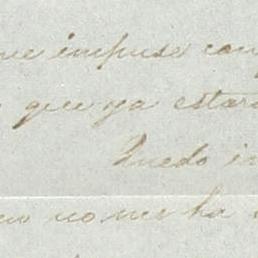 ue impuse con
que ya estar
Quedo in
no me ha